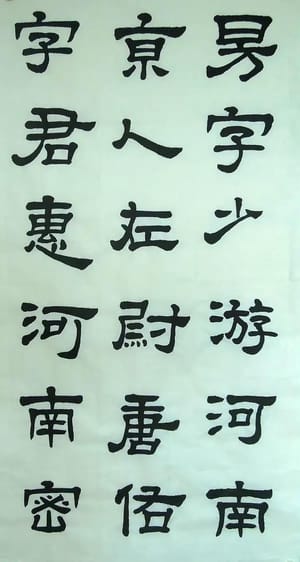 昉字少游河南
京人左尉唐佑
字君惠河南密